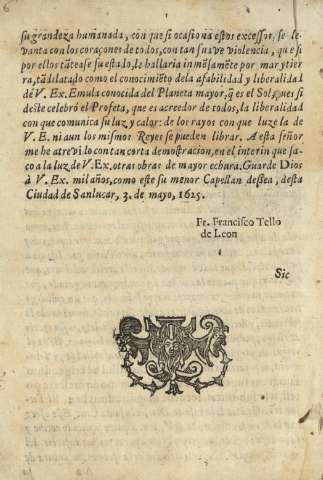 su grandeza humanada, con que si ocasiona estos excessos, se le
vanta con los coraçones de todos, con tan suave violencia, que si
por ellos tãtease su estado, le hallaria inmẽsamẽte por mar y tier
ra, tã dilatado como el conocimiẽto dela afabilidad y liberalidad
de V. Ex. Emula conocida del Planeta mayor, q̃ es el Sol, pues si
deste celebró el Profeta, que es acreedor de todos, la liberalidad
con que comunica su luz y calor: de los rayos con que luze la de
V. E. ni aun los mismos Reyes se pueden librar. A esta señor
me he atrevido con tan corta demostracion, en el interin que sa-
co a la luz de V. Ex. otras obras de mayor echura. Guarde Dios
à V. Ex. mil años, como este su menor Capellan dessea, desta
Ciudad de Sanlucar, 3. de mayo, 1625.
Fr. Francisco Tello
de Leon
Sic